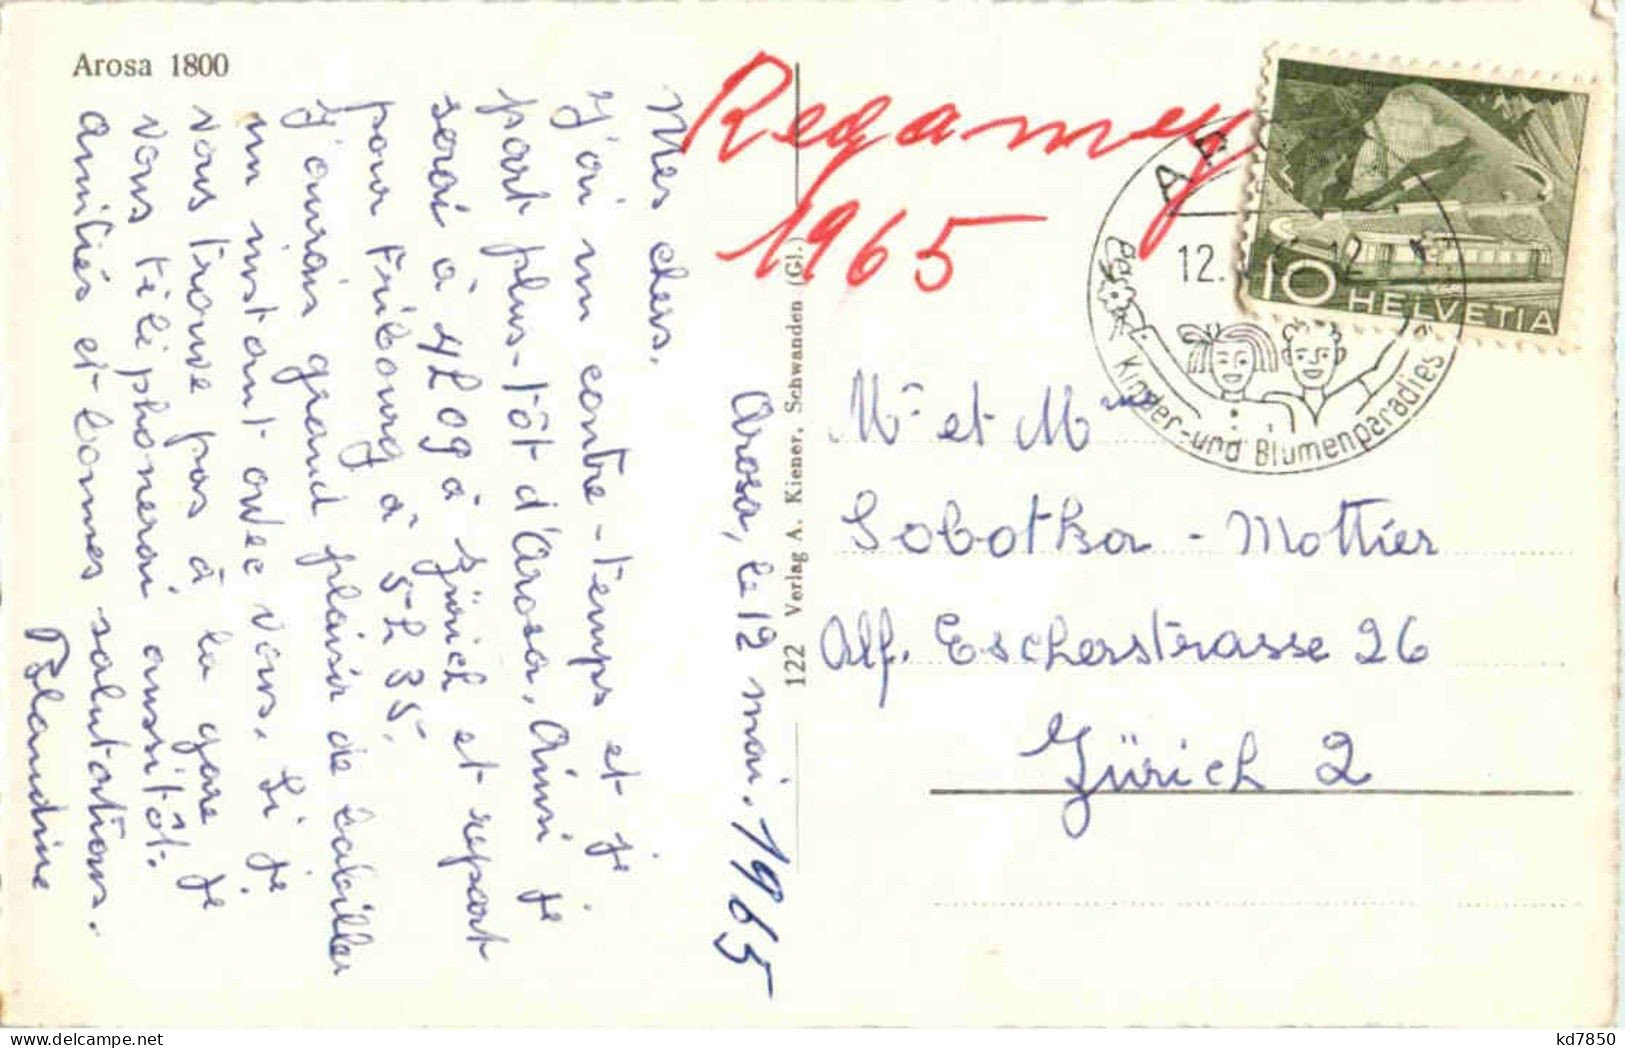 Arosa 1800
Regamey
1965
Arosa, le 12 mai. 1965
Mes chers,
J'ai un contre-temps et je
part plus-tôt d'Arosa, Ainsi je
serai à 4h09 à Zürich et repart
pour Fribourg à 5h35.
J'aurais grand plaisir de babiller
un instant avec vous. Si je
vous trouve pas à la gare je
vous téléphonerai aussitôt.
Amitiés et bonnes salutations.
Blandine
122 Verlag A. Kiener, Schwanden (Gl.)
12.
12
Das
Kinder-und Blumenparadies
10 HELVETIA
Mr et Mme
Sobotka - Mottier
Alf. Escherstrasse 26
Zürich 2
kd7850